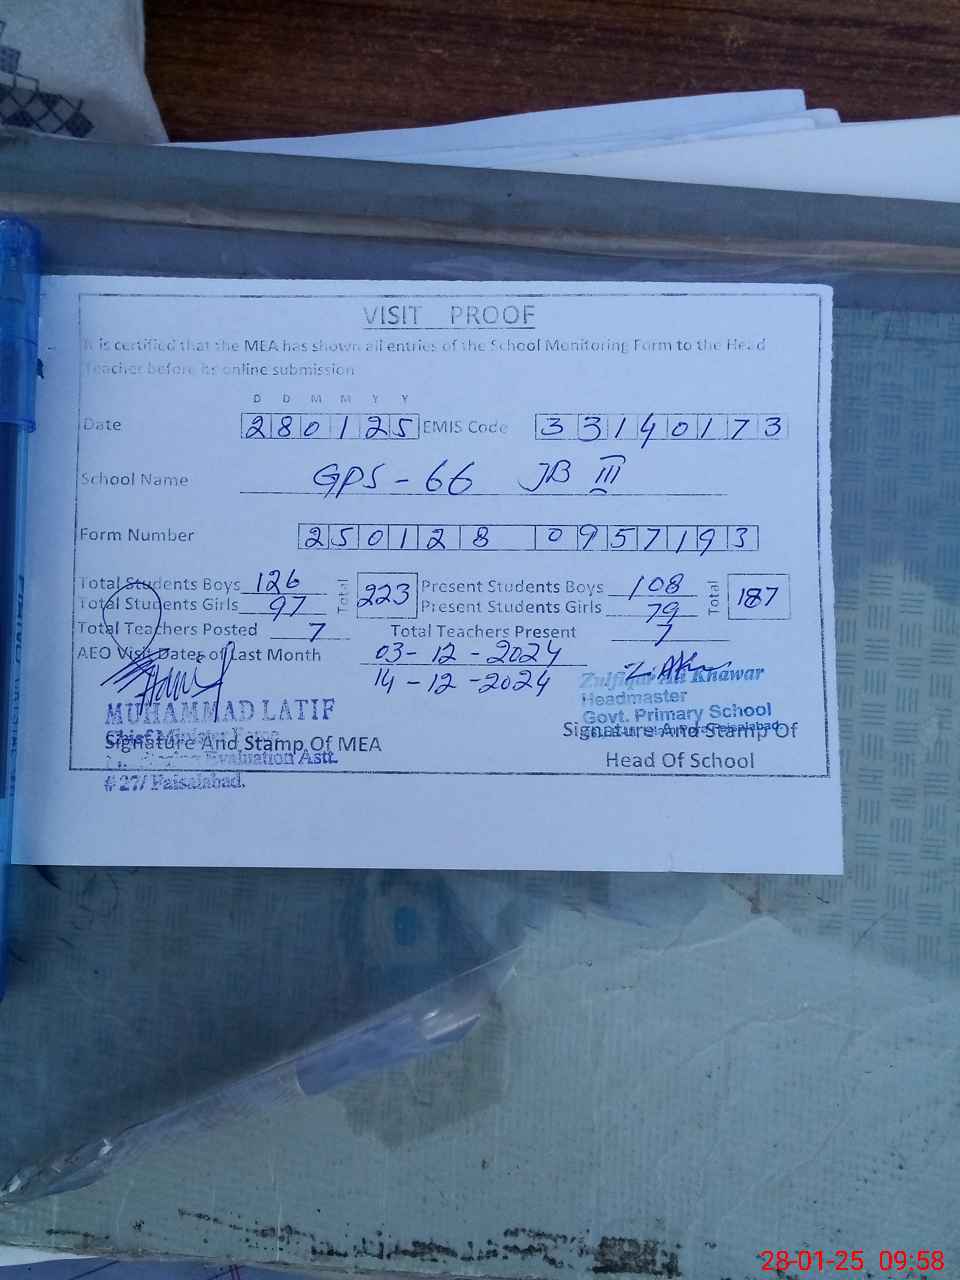 VISIT PROOF
It is certified that the MEA has shown all entries of the School Monitoring Form to the Head
Teacher before its online submission
D D M M Y Y
Date 280125 EMIS Code 33140173
School Name GPS - 66 JB III
Form Number 250128 0957193
Total Students Boys 126 Total 223 Present Students Boys 108 Total 187
Total Students Girls 97 Present Students Girls 79
Total Teachers Posted 7 Total Teachers Present 7
AEO Visit Dates of Last Month 03-12-2024
14-12-2024
Zulfiqar Ali Khawar
Headmaster
Govt. Primary School
Faisalabad
Signature And Stamp Of
Head Of School
MUHAMMAD LATIF
Chief Minister
Signature And Stamp Of MEA
Evaluation Astt.
# 27/ Faisalabad.
28-01-25 09:58